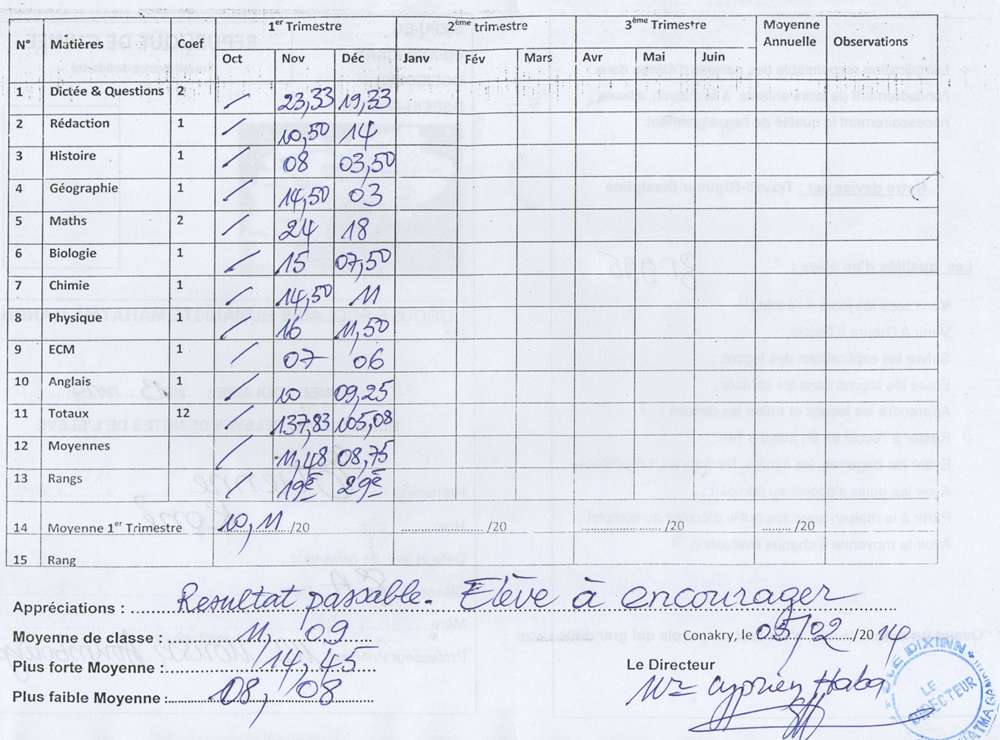 1er Trimestre 2ème trimestre 3ème Trimestre Moyenne Annuelle Observations
N° Matières Coef Oct Nov Déc Janv Fév Mars Avr Mai Juin
1 Dictée & Questions 2 / 23,33 19,33
2 Rédaction 1 / 10,50 14
3 Histoire 1 / 08 03,50
4 Géographie 1 / 14,50 03
5 Maths 2 / 24 18
6 Biologie 1 / 15 07,50
7 Chimie 1 / 14,50 11
8 Physique 1 / 16 11,50
9 ECM 1 / 07 06
10 Anglais 1 / 10 09,25
11 Totaux 12 / 137,83 105,08
12 Moyennes / 11,48 08,75
13 Rangs / 19e 29e
14 Moyenne 1er Trimestre 10,11 /20 /20 /20 /20
15 Rang
Appréciations : Resultat passable. Elève à encourager
Moyenne de classe : 11,09
Conakry, le 05/02/2014
Plus forte Moyenne : 14,45
Le Directeur
Plus faible Moyenne : 08,08
Mr Cyprien Haba
DIXINN
LE DIRECTEUR